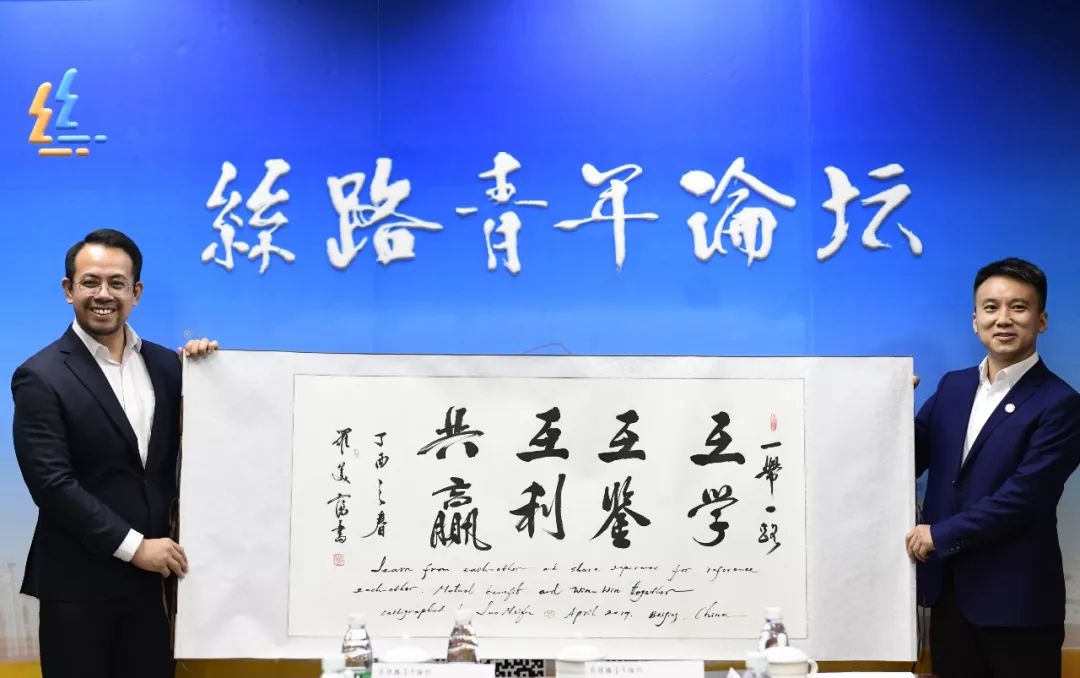 絲路青年論坛
一帶一路
互学
互鉴
互利
共赢
丁酉之春
羅美富書
Learn from each-other and share experience for reference
each-other. Mutual benefit and win-win together
calligraphed by Luo Meifu April 2017. Beijing. China